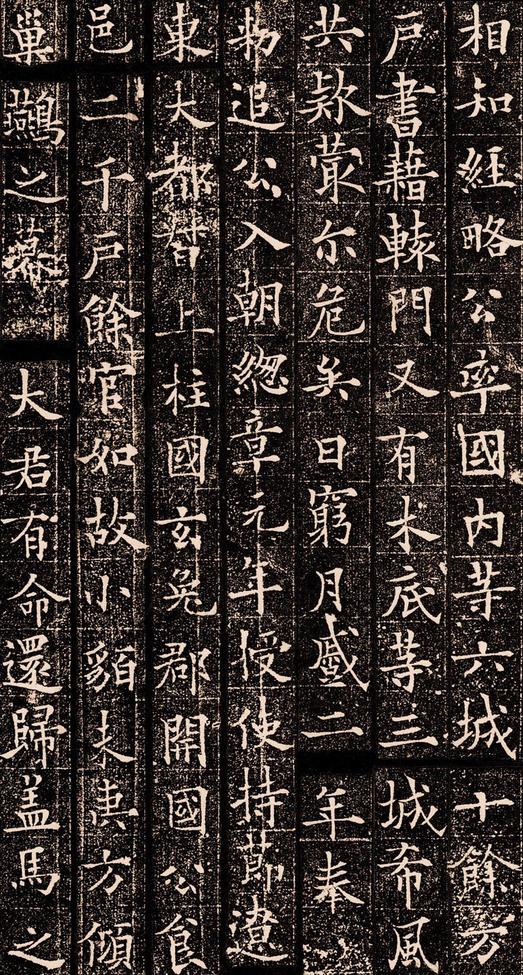 相知經略公率國内等六城十餘万
戸書藉轅門又有木底等三城希風
共款蕞尓危矣日窮月蹙二年奉
勑追公入朝緫章元年授使持節遼
東大都督上柱國玄菟郡開國公食
邑二千戸餘官如故小貊未夷方傾
巢之幕大君有命還歸盖馬之